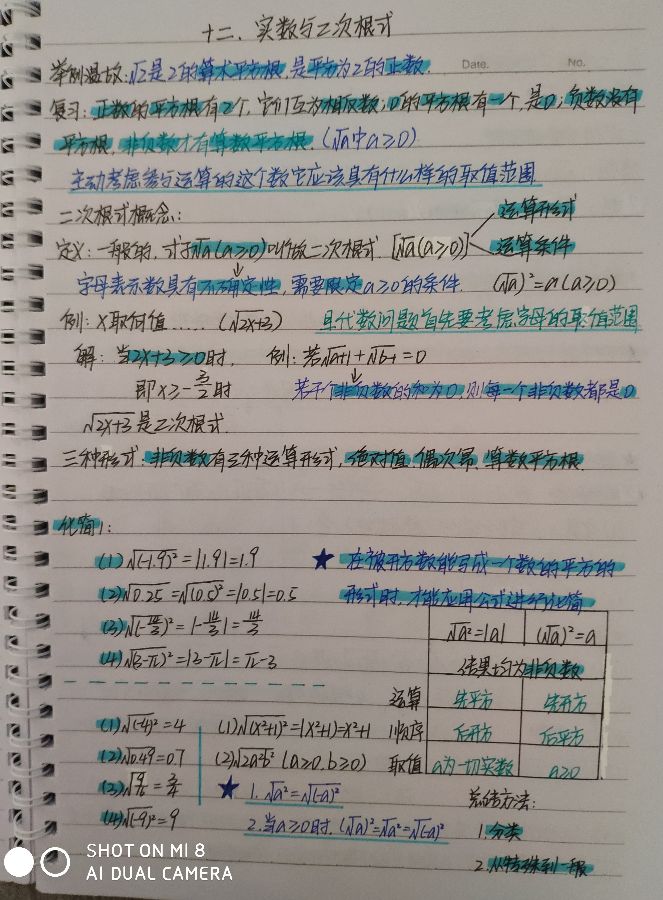 十二、实数与二次根式
Date. No.
举例温故:√2是2的算术平方根,是平方为2的正数.
复习:正数的平方根有2个,它们互为相反数;0的平方根有一个,是0;负数没有
平方根,非负数才有算数平方根.(√a中a≥0)
主动考虑参与运算的这个数它应该具有什么样的取值范围
二次根式概念:
定义:一般的,式子√a(a≥0)叫做二次根式. [√a(a≥0)] 运算形式 运算条件
字母表示数具有不确定性,需要限定a≥0的条件. (√a)²=a(a≥0)
例:x取何值……(√2x+3) 且代数问题首先要考虑字母的取值范围
解:当2x+3≥0时, 例:若√a+1+√b-1=0
即x≥-3/2时 若干个非负数的和为0,则每一个非负数都是0
√2x+3是二次根式.
三种形式:非负数有三种运算形式,绝对值、偶次幂、算数平方根.
化简1:
(1)√(-1.9)²=|1.9|=1.9 ★ 在被开方数能写成一个数的平方的
(2)√0.25=√(0.5)²=|0.5|=0.5 形式时,才能应用公式进行化简
(3)√(-π/3)²=|-π/3|=π/3 √a²=|a| (√a)²=a
(4)√(3-π)²=|3-π|=π-3 结果均为非负数
运算 先平方 先开方
(1)√(-4)²=4 (1)√(x²+1)²=|x²+1|=x²+1 顺序 后开方 后平方
(2)√0.49=0.7 (2)√2a²b²(a≥0.b≥0) 取值 a为一切实数 a≥0
★ 1.√a²=√(-a)² 总结方法:
(4)√(-9)²=9 2.当a≥0时.(√a)²=√a²=√(-a)² 1.分类
2.从特殊到一般
SHOT ON MI 8
AI DUAL CAMERA